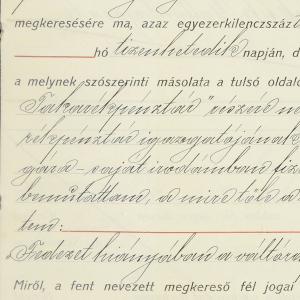 megkeresésére ma, azaz egyezerkilenczszáz
hó tizenhetedik napján, d
a melynek szószerinti másolata a tulsó oldalo
Takarékpénztár" részvé
rékpénztár igazgatójának
gára - saját irodámban fize
bemutattam, a mire tőle a
tem:
"Fedezet hiányában a váltóra
Miről, a fent nevezett megkereső fél jogai